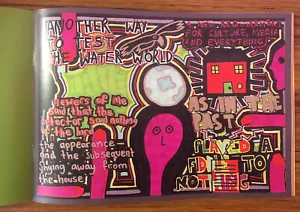 ANOTHER WAY
TO TEST
THE WATER WORLD
Viewers of me
said that the
ector said nothing
in the
the appearance
and the subsequent
shying away from
the house
A NEW
FOR CULTURE, MEDIA
AND EVERYTHING
AS IN THE
PAST
I PLAYED A
FIDDLE TO
NOTHING